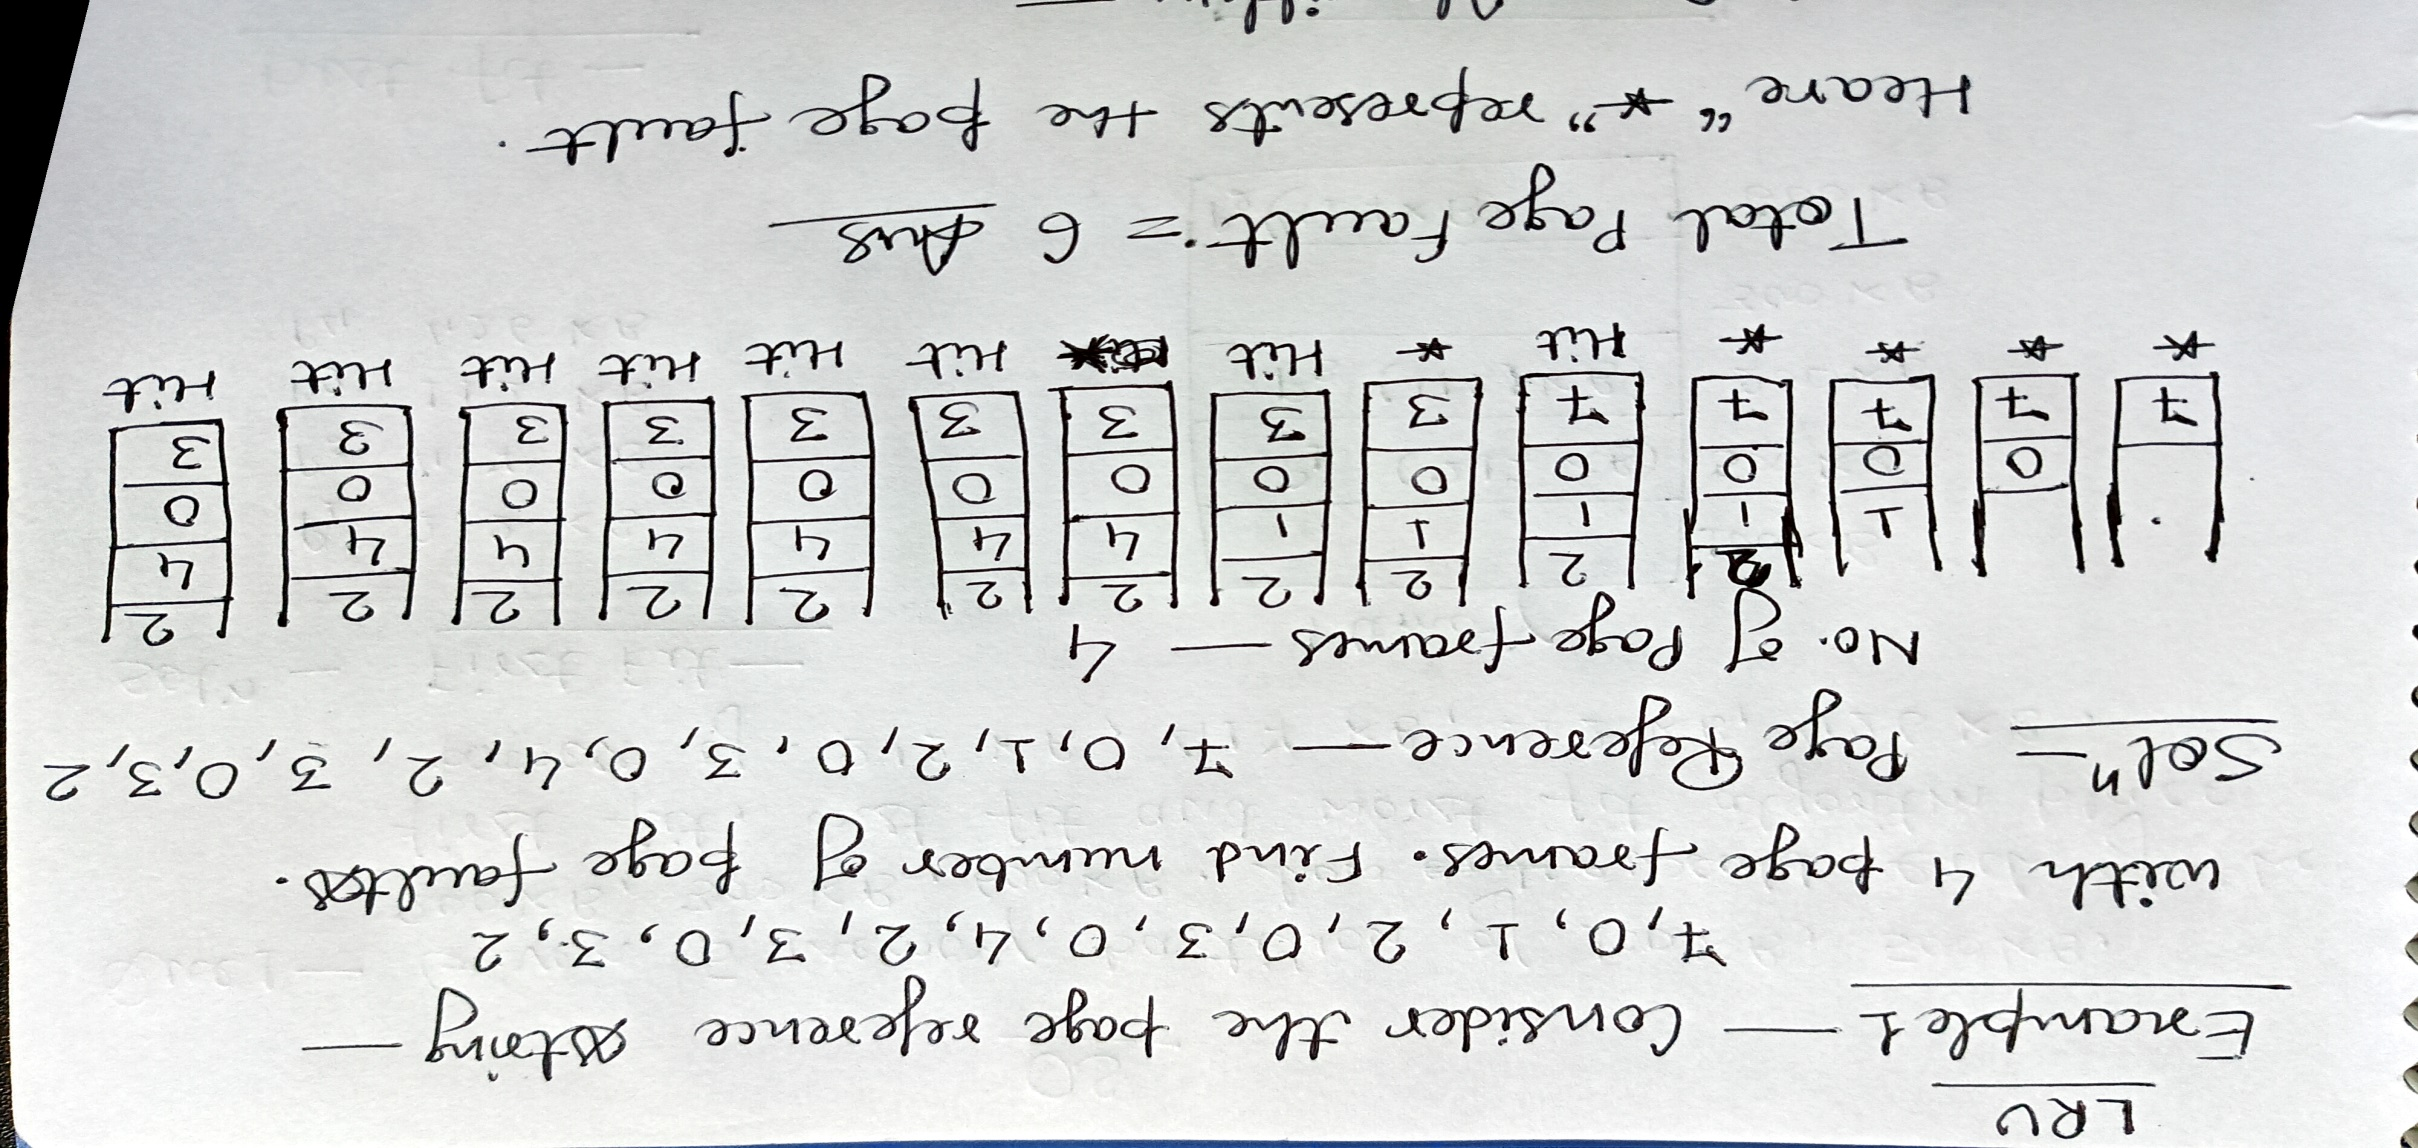 LRU
Example 1 — Consider the page reference string —
7, 0, 1, 2, 0, 3, 0, 4, 2, 3, 0, 3, 2
with 4 page frames. Find number of page faults.
Solⁿ — Page Reference — 7, 0, 1, 2, 0, 3, 0, 4, 2, 3, 0, 3, 2
No. of Page frames — 4
2 2 2 2 2 2 2 2 2 2 2
1 1 1 1 1 4 4 4 4 4 4 4
0 0 0 0 0 0 0 0 0 0 0 0 0
7 7 7 7 7 3 3 3 3 3 3 3 3 3
* * * * Hit * Hit * Hit Hit Hit Hit Hit Hit
Total Page Fault = 6 Ans
Heare "*" represents the page fault.